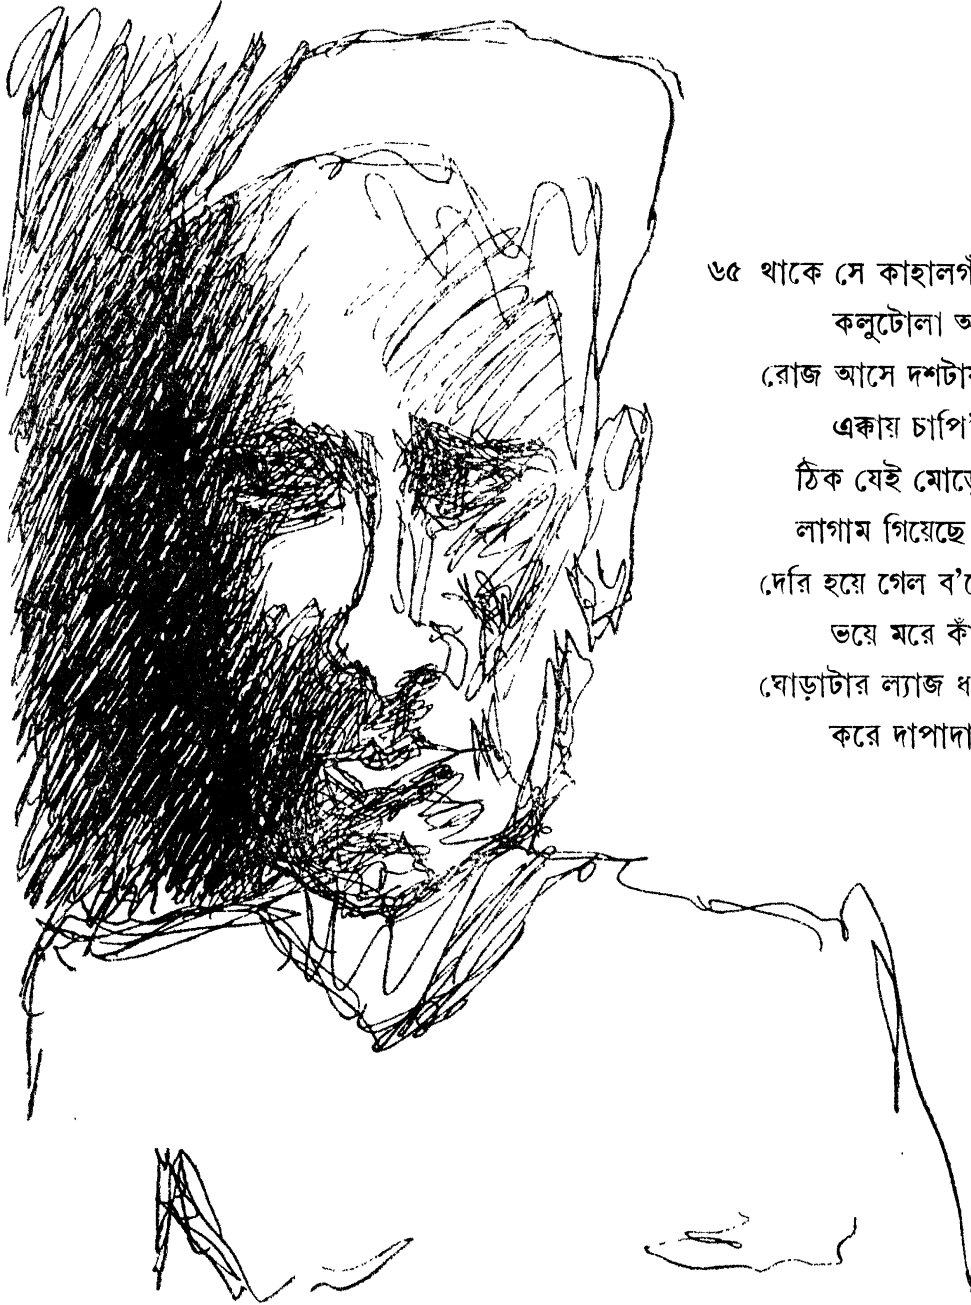 ৬৫ থাকে সে কাহালগাঁ
কলুটোলা আ
রোজ আসে দশটায়
এক্কায় চাপি
ঠিক যেই মোড়ে
লাগাম গিয়েছে
দেরি হয়ে গেল ব'লে
ভয়ে মরে কাঁ
ঘোড়াটার ল্যাজ ধ
করে দাপাদা